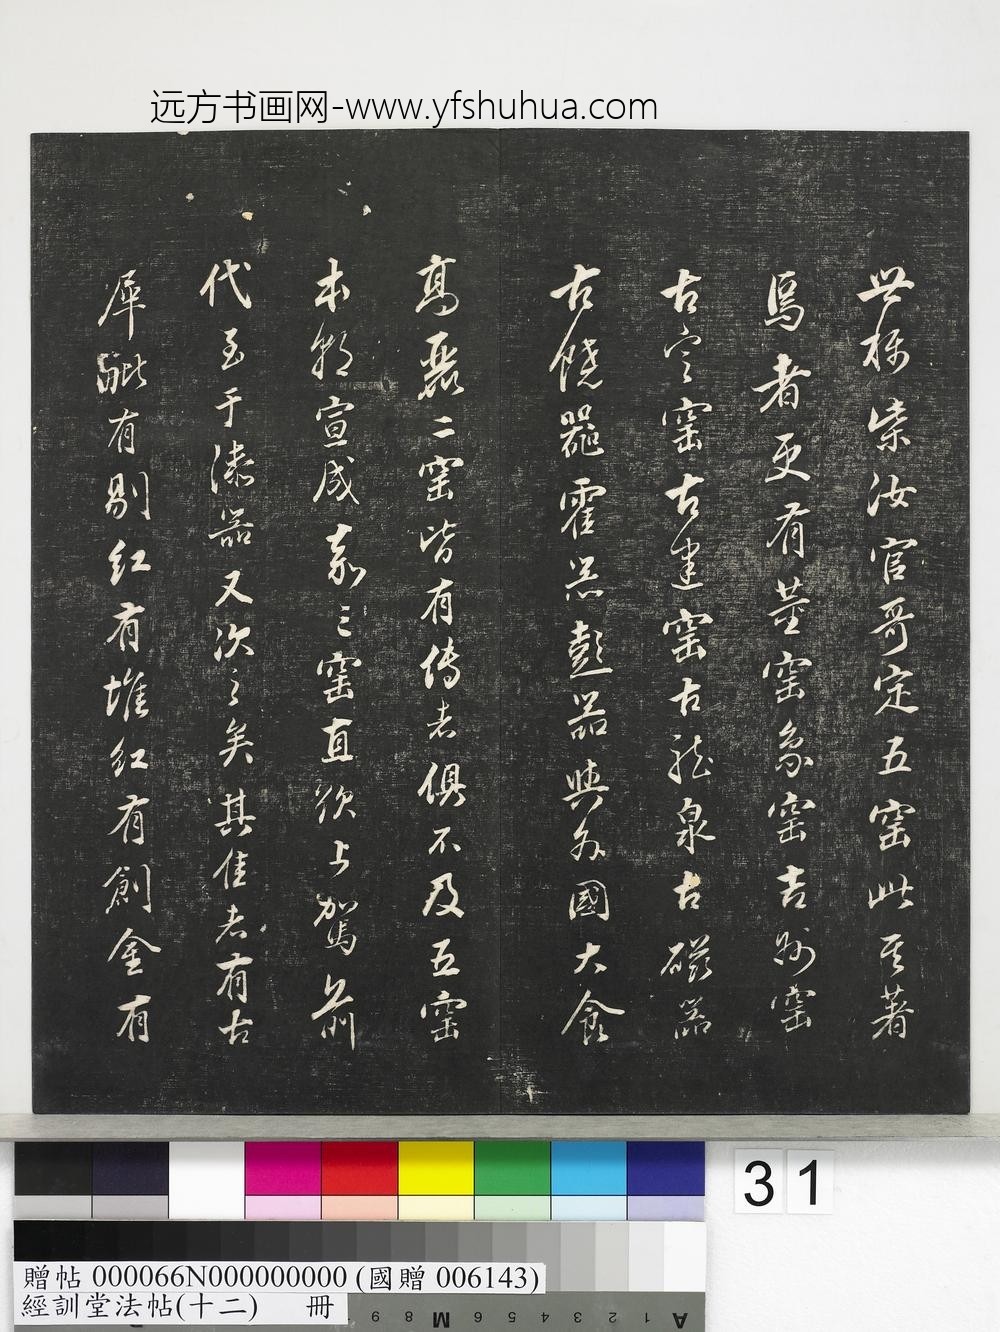 远方书画网-www.yfshuhua.com
世稱柴汝官哥定五窑此其著
焉者更有董窑象窑吉州窑
古定窑古建窑古龍泉古磁器
古饒器霍器彭器與外國大食
高麗二窑皆有傳者俱不及五窑
本朝宣成嘉三窑直欲上駕前
代至于漆器又次之矣其佳者有古
犀毗有剔紅有堆紅有創金有
31
贈帖 000066N000000000 (國贈 006143)
經訓堂法帖(十二) 冊
A 1 2 3 4 5 6 M 8 9